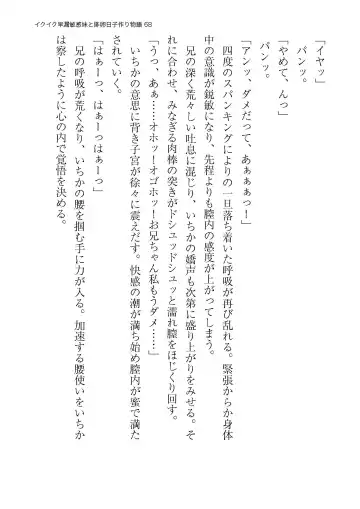 イクイク早漏敏感妹と排卵日子作り物語 68
「イヤッ」
パンッ。
「やめて、んっ」
パンッ。
「アンッ、ダメだって、あぁぁぁっ！」
四度のスパンキングによりの一旦落ち着いた呼吸が再び乱れる。緊張からか身体
中の意識が鋭敏になり、先程よりも膣内の感度が上がってしまう。
兄の深く荒々しい吐息に混じり、いちかの嬌声も次第に盛り上がりをみせる。そ
れに合わせ、みなぎる肉棒の突きがドシュッドシュッと濡れ膣をほじくり回す。
「うっ、あぁ……オホッ！オゴホッ！お兄ちゃん私もうダメ……」
いちかの意思に背き子宮が徐々に震えだす。快感の潮が満ち始め膣内が蜜で満た
される。
「はぁーっ、はぁーっはぁーっ」
兄の呼吸が荒くなり、いちかの腰を掴む手に力が入る。加速する腰使いをいちか
は察したように心の内で覚悟を決める。